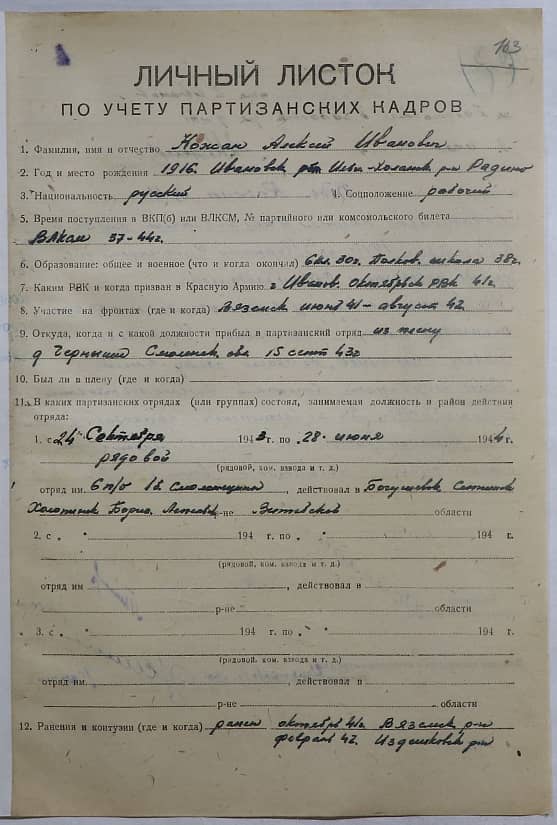 163
ЛИЧНЫЙ ЛИСТОК
ПО УЧЕТУ ПАРТИЗАНСКИХ КАДРОВ
1. Фамилия, имя и отчество Кожан Алксий Иванович
2. Год и место рождения 1916. Ивановск обл р-н
3. Национальность русский 4. Соцположение рабочий
5. Время поступления в ВКП(б) или ВЛКСМ, № партийного или комсомольского билета
37-44г.
6. Образование: общее и военное (что и когда окончил) 6кл. 30г. Полков. школа 38г.
7. Каким РВК и когда призван в Красную Армию г Иванов. Октябрьск РВК 41г.
8. Участие на фронтах (где и когда) Вяземск июнь 41 – август 42.
9. Откуда, когда и с какой должности прибыл в партизанский отряд из плену
д Смоленск. обл. 15 сент 43г
10. Был ли в плену (где и когда)
11. В каких партизанских отрядах (или группах) состоял, занимаемая должность и район действия
отряда:
1. с 24 Сентября 1943 г. по 28 июня 1944 г.
рядовой
(рядовой, ком. взвода и т. д.)
отряд им. 6 п/о , действовал в Богушевск Сенненск
Холопинск Борис. р-не Витебской области
2. с " " 194 г. по " " 194 г.
(рядовой, ком. взвода и т. д.)
отряд им , действовал в
р-не области
3. с " " 194 г. по " " 194 г.
(рядовой, ком. взвода и т. д.)
отряд им. , действовал в
р-не области
12. Ранения и контузии (где и когда) ранен октябрь 41г. Вяземск р-н
февраль 42. Издешковск р-н